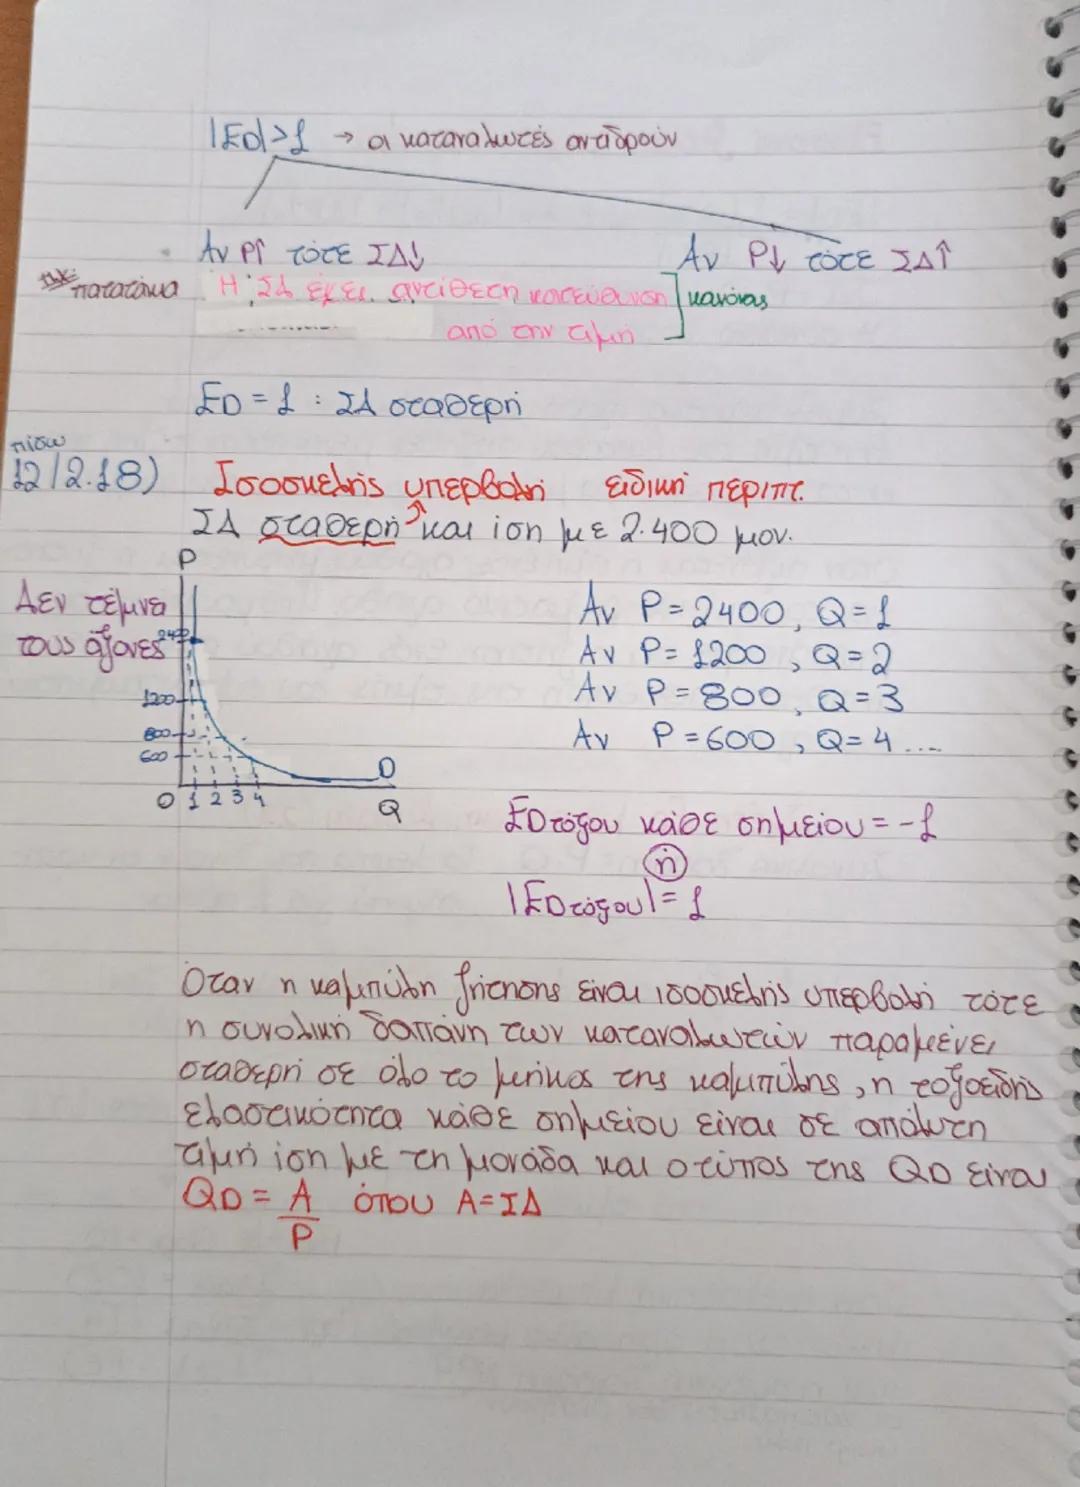 |ED|>1 → οι καταναλωτές αντιδρούν
Αν P↑ τότε ΣΔ↓
Αν P↓ τότε ΣΔ↑
πατατάκια
Η ΣΔ έχει αντίθετη κατεύθυνση
από την τιμή
κανόνας
ED = 1 : ΣΔ σταθερή
πίσω
12/2.18)
Ισοσκελής υπερβολή ειδική περιπτ.
ΣΔ σταθερή και ίση με 2.400 μον.
P
Δεν τέμνει
τους άξονες
1200
800
600
0 1 2 3 4
D
Q
Αν P=2400, Q=1
Αν P=1200, Q=2
Αν P=800, Q=3
Αν P=600, Q=4....
ED τόξου κάθε σημείου = -1
ή
|ED τόξου| = 1
Όταν η καμπύλη ζήτησης είναι ισοσκελής υπερβολή τότε
η συνολική δαπάνη των καταναλωτών παραμένει
σταθερή σε όλο το μήκος της καμπύλης, η τοξοειδής
ελαστικότητα κάθε σημείου είναι σε απόλυτη
τιμή ίση με τη μονάδα και ο τύπος της QD είναι
QD = A/P όπου A=ΣΔ